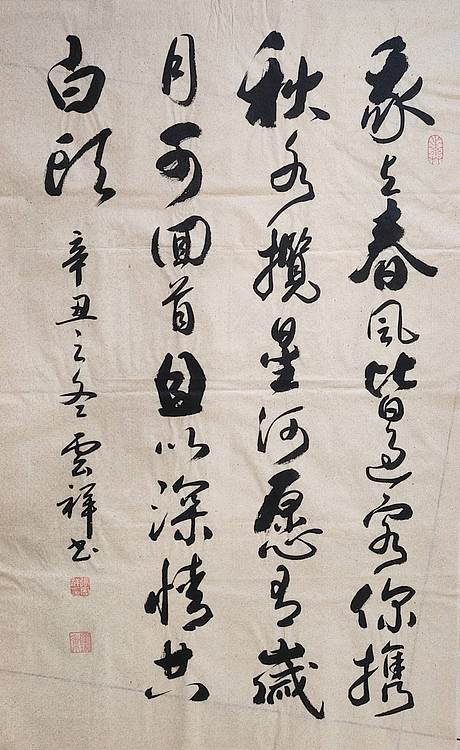 我与春風皆過客你携
秋水攬星河愿有歲
月可回首且以深情共
白頭
辛丑之冬雲祥书